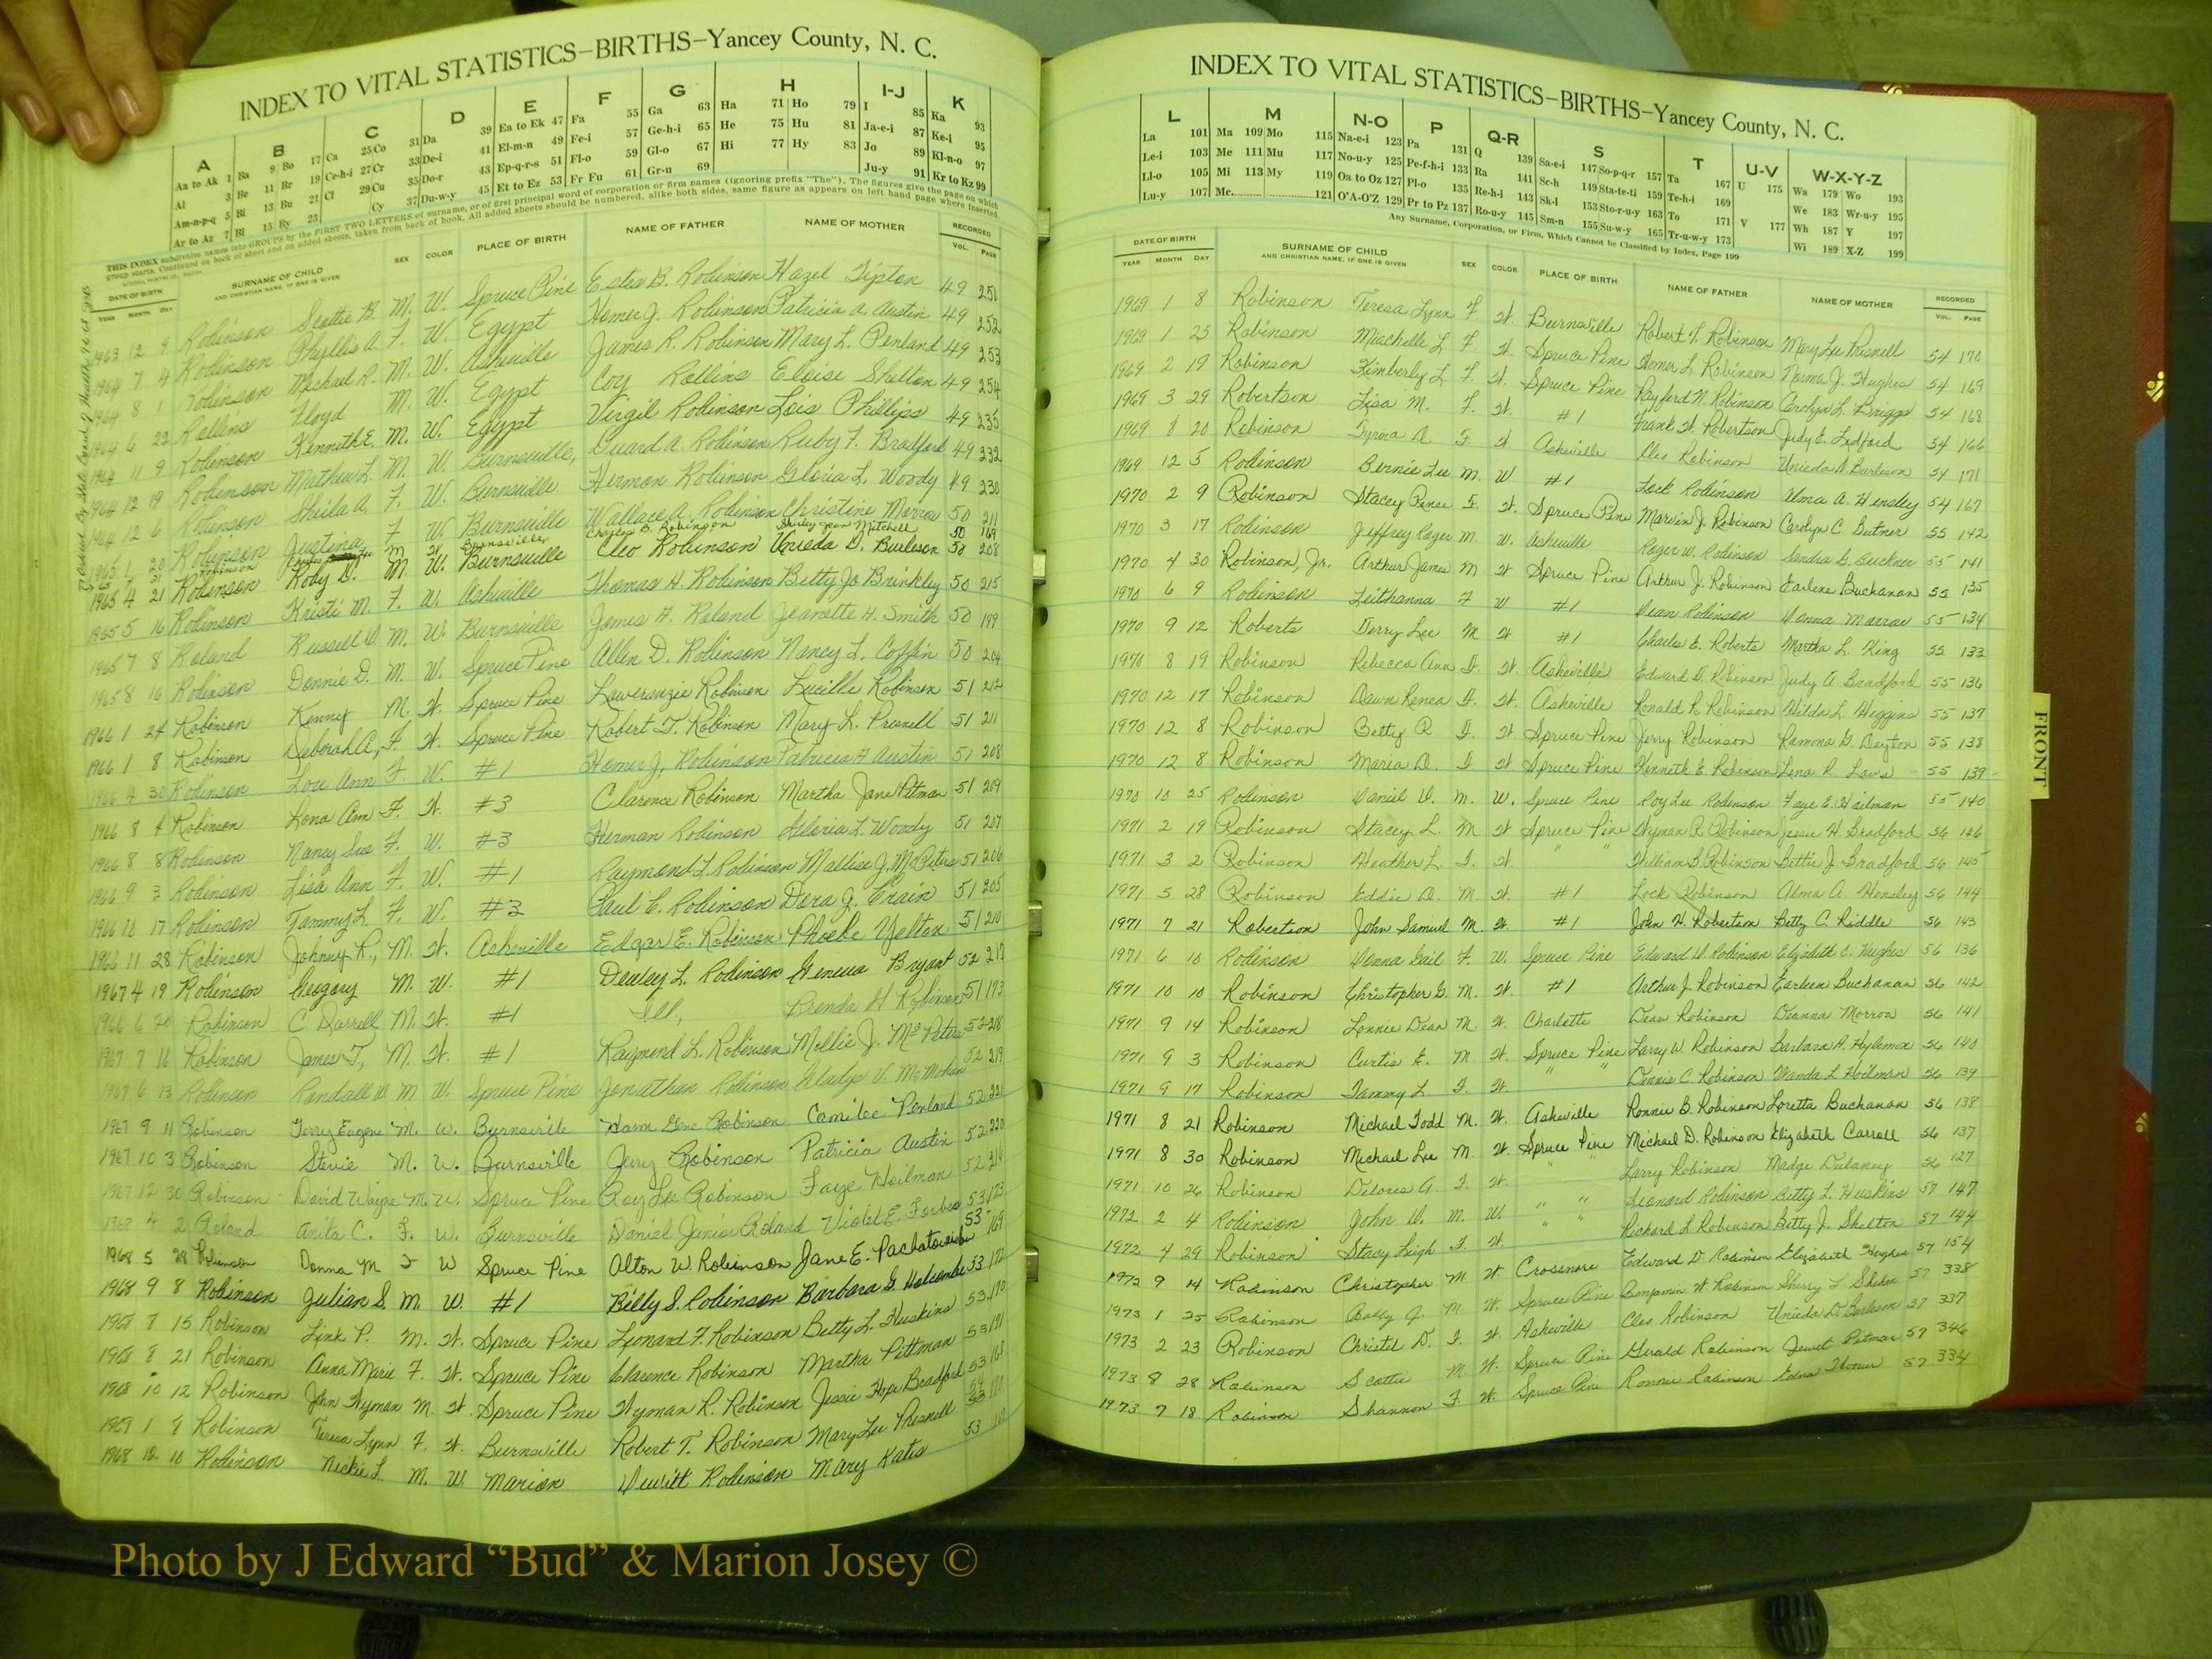 INDEX TO VITAL STATISTICS–BIRTHS–Yancey County, N. C.
A B C D E F G H I-J K
Aa to Ak 1 Ba 9 Bo 17 Ca 25 Co 31 Da 39 Ea to Ek 47 Fa 55 Ga 63 Ha 71 Ho 79 I 85 Ka 93
Al 3 Be 11 Br 19 Ce-h-i 27 Cr 33 De-i 41 El-m-n 49 Fe-i 57 Ge-h-i 65 He 75 Hu 81 Ja-e-i 87 Ke-i 95
Am-n-p-q 5 Bi 13 Bu 21 Cl 29 Cu 35 Do-r 43 Ep-q-r-s 51 Fl-o 59 Gl-o 67 Hi 77 Hy 83 Jo 89 Kl-n-o 97
Ar to Az 7 Bl 15 By 23 Cy 37 Du-w-y 45 Et to Ez 53 Fr Fu 61 Gr-u 69 Ju-y 91 Kr to Kz 99
THIS INDEX subdivides names into GROUPS by the FIRST TWO LETTERS of surname, or of first principal word of corporation or firm names (ignoring prefix "The"). The figures give the page on which
group starts. Continued on back of sheet and on added sheets, taken from back of book. All added sheets should be numbered, alike both sides, same figure as appears on left hand page where inserted.
DATE OF BIRTH SURNAME OF CHILD SEX COLOR PLACE OF BIRTH NAME OF FATHER NAME OF MOTHER RECORDED
YEAR MONTH DAY AND CHRISTIAN NAME, IF ONE IS GIVEN VOL. PAGE
1963 12 9 Robinson Scottie B. M. W. Spruce Pine Estes B. Robinson Hazel Tipton 49 251
1964 7 4 Robinson Phyllis A F. W. Egypt Homer J. Robinson Patricia A. Austin 49 252
1964 8 1 Robinson Michael R. M. W. Asheville James R. Robinson Mary L. Penland 49 253
1964 6 22 Rollins Floyd M. W. Egypt Coy Rollins Eloise Shelton 49 254
1964 11 9 Robinson Kenneth E. M. W. Egypt Virgil Robinson Lois Phillips 49 235
1964 12 19 Robinson Mathew L. M. W. Burnsville, Guard A. Robinson Ruby F. Bradford 49 232
1964 12 6 Robinson Sheila A. F. W. Burnsville Hermon Robinson Gloria L. Woody 49 230
1965 1 20 Robinson Justina F W. Burnsville Wallace A. Robinson Christine Morrow 50 211
Robinson M W Burnsville Charles B. Robinson Shirley Jean Mitchell 50 169
1965 4 21 Robinson Roby D. M. W. Burnsville Cleo Robinson Unieda D. Burleson 50 208
1965 5 16 Robinson Kristi M. F. W. Asheville Thomas H. Robinson Betty Jo Brinkley 50 215
1965 7 8 Roland Russell D. M. W. Burnsville James H. Roland Jeanette H. Smith 50 199
1965 8 16 Robinson Donnie D. M. W. Spruce Pine Allen D. Robinson Nancy L. Coffin 50 204
1966 1 24 Robinson Kenny M. W. Spruce Pine Lawrenzie Robinson Lucille Robinson 51 212
1966 1 8 Robinson Deborah A., F. W. Spruce Pine Robert T. Robinson Mary L. Presnell 51 211
1966 4 30 Robinson Lou Ann F. W. #1 Homer J. Robinson Patricia A Austin 51 208
1966 8 4 Robinson Lona Ann F. W. #3 Clarence Robinson Martha Jane Pitman 51 209
1966 8 8 Robinson Nancy Sue F. W. #3 Herman Robinson Gloria L. Woody 51 207
1966 9 3 Robinson Lisa Ann F. W. #1 Raymond L. Robinson Mallise J. McPeters 51 206
1966 10 17 Robinson Tammy L. F. W. #3 Paul C. Robinson Dora J. Crain 51 205
1966 11 28 Robinson Johnny R., M. W. Asheville Edgar E. Robinson Phoebe Yelton 51 210
1967 4 19 Robinson Geogary M. W. #1 Dewey L. Robinson Geneva Bryant 52 217
1966 6 20 Robinson C. Darrell M. W. #1 Ill., Brenda H Robinson 51 193
1967 7 16 Robinson James T., M. W. #1 Raymond L. Robinson Mollie J. McPeters 52 218
1967 6 13 Robinson Randall W. M W. Spruce Pine Jonathan Robinson Gladys V. McMahan 52 219
1967 9 11 Robinson Terry Eugene M. W. Burnsville Harm Gene Robinson Camilee Penland 52 221
1967 10 3 Robinson Stevie M. W. Burnsville Jerry Robinson Patricia Austin 52 220
1967 12 30 Robinson David Wayne M. W. Spruce Pine Roy Lee Robinson Faye Hoilman 52 216
1968 4 2 Roland Anita C. F. W. Burnsville Daniel Junior Roland Violet E. Forbes 53 173
1968 5 28 Robinson Donna M F W Spruce Pine Alton W. Robinson Jane E. 53 169
1968 9 8 Robinson Julian S. M. W. #1 Billy S. Robinson Barbara G. Holcombe 53 172
1968 7 15 Robinson Link P. M. W. Spruce Pine Leonard F. Robinson Betty L. Huskins 53 170
1968 8 21 Robinson Anna Marie F. W. Spruce Pine Clarence Robinson Martha Pittman 53 171
1968 10 12 Robinson John Wyman M. W. Spruce Pine Wyman R. Robinson Jessie Hope Bradford 53 168
1969 1 8 Robinson Teresa Lynn F. W. Burnsville Robert T. Robinson Mary Lee Presnell
1968 12 10 Robinson Nickie L. M. W. Marion Dewitt Robinson Mary Katie 53
INDEX TO VITAL STATISTICS–BIRTHS–Yancey County, N. C.
L M N-O P Q-R S T U-V W-X-Y-Z
La 101 Ma 109 Mo 115 Na-e-i 123 Pa 131 Q 139 Sa-e-i 147 So-p-q-r 157 Ta 167 U 175 Wa 179 Wo 193
Le-i 103 Me 111 Mu 117 No-u-y 125 Pe-f-h-i 133 Ra 141 Sc-h 149 Sta-te-ti 159 Te-h-i 169 We 183 Wr-u-y 195
Ll-o 105 Mi 113 My 119 Oa to Oz 127 Pl-o 135 Re-h-i 143 Sk-l 153 Sto-r-u-y 163 To 171 V 177 Wh 187 Y 197
Lu-y 107 Mc 121 O'A-O'Z 129 Pr to Pz 137 Ro-u-y 145 Sm-n 155 Su-w-y 165 Tr-u-w-y 173 Wi 189 X-Z 199
Any Surname, Corporation, or Firm, Which Cannot be Classified by Index, Page 199
DATE OF BIRTH SURNAME OF CHILD SEX COLOR PLACE OF BIRTH NAME OF FATHER NAME OF MOTHER RECORDED
YEAR MONTH DAY AND CHRISTIAN NAME, IF ONE IS GIVEN VOL. PAGE
1969 1 8 Robinson Teresa Lynn F W. Burnsville Robert T. Robinson Mary Lee Presnell 54 170
1969 1 23 Robinson Miachelle L F. W. Spruce Pine Homer L. Robinson Norma J. Hughes 54 169
1969 2 19 Robinson Kimberly L F. W. Spruce Pine Rayford N. Robinson Carolyn L. Briggs 54 168
1969 3 29 Robertson Lisa M. F. W. #1 Frank W. Robertson Judy E. Ledford 54 166
1969 8 20 Robinson Tyrina A F. W Asheville Cleo Robinson Unieda D Burleson 54 171
1969 12 5 Robinson Bernie Lee M. W #1 Lock Robinson Alma A. Hensley 54 167
1970 2 9 Robinson Stacey Renee F. W. Spruce Pine Marvin J. Robinson Carolyn C. Butner 55 142
1970 3 17 Robinson Jeffrey Roger M. W. Asheville Roger W. Robinson Sandra G. Buckner 55 141
1970 4 30 Robinson, Jr. Arthur James M W Spruce Pine Arthur J. Robinson Earlene Buchanan 55 135
1970 6 9 Robinson Leithanna F W #1 Dean Robinson Donna Morrow 55 134
1970 9 12 Roberts Terry Lee M W #1 Charles E. Roberts Martha L. King 55 133
1970 8 19 Robinson Rebecca Ann F. W. Asheville Edward D. Robinson Judy A Bradford 55 136
1970 12 17 Robinson Dawn Renea F. W. Asheville Ronald R. Robinson Hilda L. Higgins 55 137
1970 12 8 Robinson Betty R F. W Spruce Pine Jerry Robinson Ramona G. Deyton 55 138
1970 12 8 Robinson Maria D. F W Spruce Pine Kenneth E Robinson Lena R. Laws 55 139
1970 10 25 Robinson Daniel D. M. W. Spruce Pine Roy Lee Robinson Faye E. Hoilman 55 140
1971 2 19 Robinson Stacey L. M W Spruce Pine Wyman R. Robinson Jessie H. Bradford 56 146
1971 3 2 Robinson Heather L. F. W. " " William B. Robinson Bettie J. Bradford 56 145
1971 5 28 Robinson Eddie D. M. W. #1 Lock Robinson Alma A. Hensley 56 144
1971 7 21 Robertson John Samuel M. W. #1 John H. Robertson Betty C. Riddle 56 143
1971 6 10 Robinson Donna Gail F. W. Spruce Pine Edward D. Robinson Elizabeth C. Hughes 56 136
1971 10 10 Robinson Christopher G. M. W. #1 Arthur J. Robinson Earleen Buchanan 56 142
1971 9 14 Robinson Lonnie Dean M. W. Charlotte Dean Robinson Deanna Morrow 56 141
1971 9 3 Robinson Curtis E. M W. Spruce Pine Larry W. Robinson Barbara A. Hylemon 56 140
1971 9 17 Robinson Tammy L. F. W. " " Dennis C Robinson Wanda L Hoilman 56 139
1971 8 21 Robinson Michael Todd M. W. Asheville Ronnie B. Robinson Loretta Buchanan 56 138
1971 8 30 Robinson Michael Lee M. W. Spruce Pine Michael D. Robinson Elizabeth Carroll 56 137
1971 10 26 Robinson Delores A. F. W. " " Larry Robinson Madge Dulaney 56 127
1972 2 4 Robinson John D. M. W. " " Leonard Robinson Betty L. Huskins 57 147
1972 4 29 Robinson Stacy Leigh F. W. " " Richard L Robinson Betty J. Shelton 57 144
1972 9 14 Robinson Christopher M W. Crossnore Edward D. Robinson Elizabeth Hughes 57 154
1973 1 25 Robinson Bobby J. M. W. Spruce Pine Benjamin W Robinson Sherry L. 57 338
1973 2 23 Robinson Christel D. F. W. Asheville Cleo Robinson Unieda D Burleson 57 337
1973 8 28 Robinson Scottie M W. Spruce Pine Gerald Robinson Jewel Pitman 57 346
1973 7 18 Robinson Shannon F. W. Spruce Pine Ronnie Robinson Edna 57 334
FRONT
Photo by J Edward “Bud” & Marion Josey ©